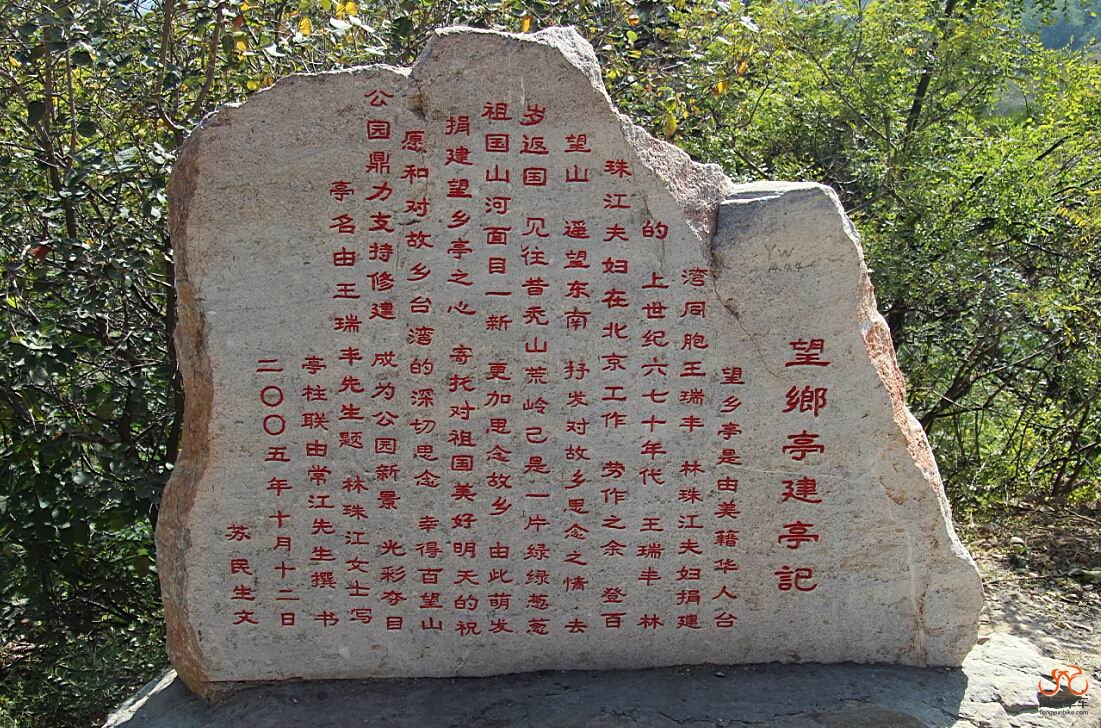 望鄉亭建亭記
望乡亭是由美籍华人台
湾同胞王瑞丰 林珠江夫妇捐建
的 上世纪六七十年代 王瑞丰 林
珠江夫妇在北京工作 劳作之余 登百
望山 遥望东南 抒发对故乡思念之情 去
岁返国 见往昔秃山荒岭己是一片绿绿葱葱
祖国山河面目一新 更加思念故乡 由此萌发
捐建望乡亭之心 寄托对祖国美好明天的祝
愿和对故乡台湾的深切思念 幸得百望山
公园鼎力支持修建 成为公园新景 光彩夺目
亭名由王瑞丰先生题 林珠江女士写
亭柱联由常江先生撰 书
二〇〇五年十月十二日
苏民生文
YW
fengyunbike.com